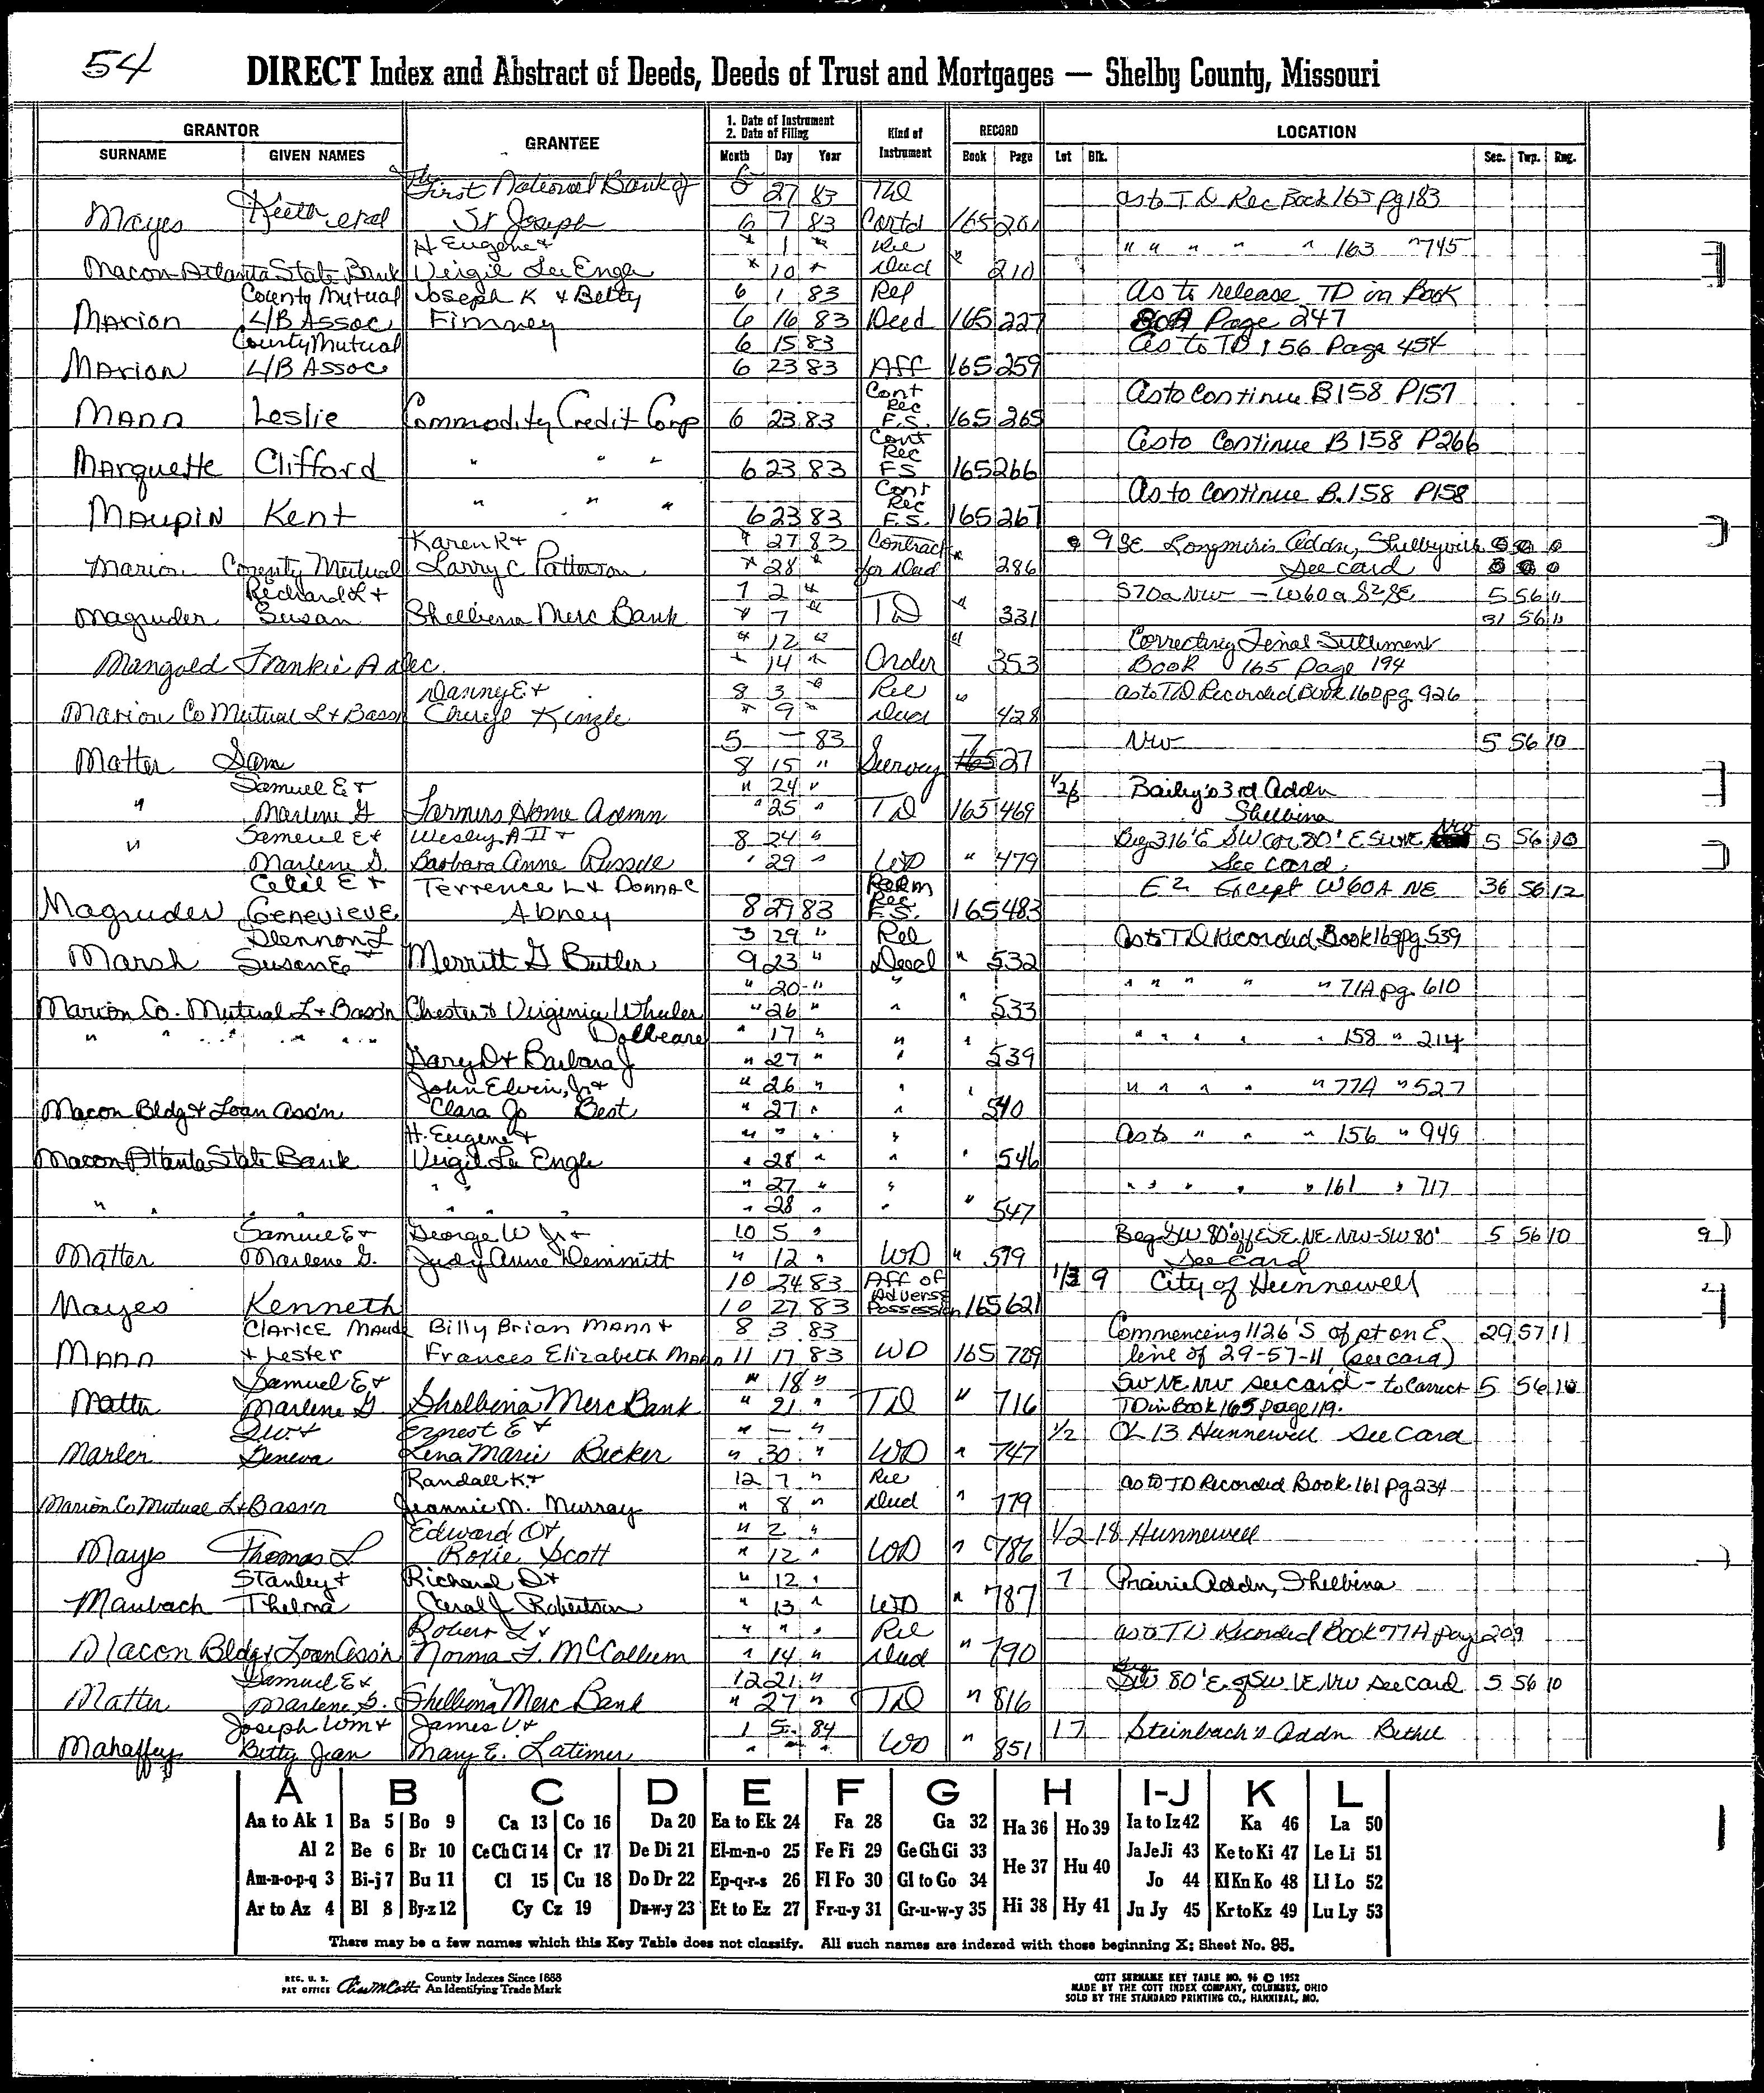 54
DIRECT Index and Abstract of Deeds, Deeds of Trust and Mortgages — Shelby County, Missouri
GRANTOR GRANTEE 1. Date of Instrument 2. Date of Filing Kind of Instrument RECORD LOCATION
SURNAME GIVEN NAMES Month Day Year Book Page Lot Blk. Sec. Twp. Rng.
The First National Bank of 27 83 TD as to TD Rec Book 165 pg 183
Mayes Keith etal St Joseph 6 7 83 Cortd 165 201
H Eugene & " 1 " Rel " " " " " 163 " 745
Macon-Atlanta State Bank Virgil Lee Engle " 10 " Deed " 210
County Mutual Joseph K & Betty 6 1 83 Rel as to release TD in Book
Marion L/B Assoc Finney 6 16 83 Deed 165 227 80A Page 247
County Mutual 6 15 83 as to TD 156 Page 454
Marion L/B Assoc 6 23 83 Aff 165 259
Cont as to continue B158 P157
Mann Leslie Commodity Credit Corp 6 23 83 Rec F.S. 165 265
Cont as to Continue B 158 P266
Marquette Clifford " " " 6 23 83 Rec FS 165 266
Cont as to continue B.158 P158
Maupin Kent " " " 6 23 83 Rec F.S. 165 267
Karen R & " 27 83 Contract 9 SE Longmire's Addn, Shelbyville
Marion County Mutual Larry C Patterson " 28 " for Deed " 286 See card
Richard L & 7 2 " S70a NW - W60a S2SE 5 56 11
Magruder Susan Shelbina Merc Bank " 7 " TD " 331 31 56 11
" 12 " Correcting Final Settlement
Mangold Frankie A dec. " 14 " Order " 353 Book 165 page 194
Danny E & 8 3 " Rel as to TD Recorded Book 160 pg 926
Marion Co Mutual L & B assn Cheryl Kinzle " 9 " Deed " 428
5 — 83 7 NW 5 56 10
Matter Sam 8 15 " Survey 27
Samuel E & " 24 " 1/2 6 Baily's 3rd Addn
" Marlene G Farmers Home Admn " 25 " TD 165 469 Shelbina
Samuel E & Wesley A II & 8 24 " Beg 316'E SW cor 80' E SWNE NW 5 56 10
" Marlene G. Barbara Anne Russell " 29 " WD " 479 See card
Cecil E & Terrence L & Donna C E2 Except W60A NE 36 56 12
Magruder Genevieve Abney 8 29 83 Rec F.S. 165 483
Glennon L 3 29 " Rel as to TD Recorded Book 163 pg 539
Marsh Susan E & Merritt G Butler 9 23 " Deed " 532
" 20 " " " " " " " 71A pg. 610
Marion Co. Mutual L & B assn Chester & Virginia Wheeler " 26 " " " 533
" " " " " Dolbeare " 17 " " " " " " 158 " 214
Gary D & Barbara J " 27 " " 539
John Elvin, Jr & " 26 " " " " " " " 77A " 527
Macon Bldg & Loan Ass'n Clara Jo Best " 27 " " 540
H. Eugene & " " " " as to " " " 156 " 949
Macon-Atlanta State Bank Virgil Lee Engle " 28 " " " 546
" " " 27 " " " " " " " 161 " 717
" " " " " " " " 28 " " " 547
Samuel E & George W Jr & 10 5 " Beg SW 80' off E SE NE NW-SW 80' 5 56 10
Matter Marlene G. Judy Anne Demmitt " 12 " WD " 579 See card
10 24 83 Aff of 1/3 9 City of Hunnewell
Mayes Kenneth 10 27 83 Adverse Possession 165 621
Clarice Maude Billy Brian Mann & 8 3 83 Commencing 1126'S of pt on E 29 57 11
Mann & Lester Frances Elizabeth Mann 11 17 83 WD 165 709 line of 29-57-11 (see card)
Samuel E & " 18 " SW NE NW see card - to correct 5 56 10
Matter Marlene G Shelbina Merc Bank " 21 " TD " 716 TD in Book 165 page 119.
Ernest E & " — " 1/2 OL 13 Hunnewell See Card
Marler Geneva Lena Marie Becker " 30 " WD " 747
Randall K & 12 7 " Rel as to TD Recorded Book 161 pg 234
Marion Co Mutual L & B ass'n Jeannie M. Murray " 8 " Deed " 779
Edward O & " 2 " 1/2 18 Hunnewell
Mayes Thomas L Roxie Scott " 12 " WD " 786
Stanley & Richard D & " 12 " 7 Prairie Addn, Shelbina
Maubach Thelma Carol J Robertson " 13 " WD " 787
Robert L & " " " Rel as to TD Recorded Book 77A page 209
Macon Bldg & Loan Ass'n Norma F. McCollum " 14 " Deed " 790
Samuel E & 12 21 " 80' E of SW NE NW see card 5 56 10
Matter Marlene G. Shelbina Merc Bank " 27 " TD " 816
Joseph Wm & James V & 1 5 84 17 Steinbach's Addn Bethel
Mahaffey Betty Jean Mary E. Latimer " " " WD " 851
A B C D E F G H I-J K L
Aa to Ak 1 Ba 5 Bo 9 Ca 13 Co 16 Da 20 Ea to Ek 24 Fa 28 Ga 32 Ha 36 Ho 39 Ia to Iz 42 Ka 46 La 50
Al 2 Be 6 Br 10 Ce Ch Ci 14 Cr 17 De Di 21 El-m-n-o 25 Fe Fi 29 Ge Gh Gi 33 He 37 Hu 40 Ja Je Ji 43 Ke to Ki 47 Le Li 51
Am-n-o-p-q 3 Bi-j 7 Bu 11 Cl 15 Cu 18 Do Dr 22 Ep-q-r-s 26 Fl Fo 30 Gl to Go 34 Jo 44 Kl Kn Ko 48 Ll Lo 52
Ar to Az 4 Bl 8 By-z 12 Cy Cz 19 Du-w-y 23 Et to Ez 27 Fr-u-y 31 Gr-u-w-y 35 Hi 38 Hy 41 Ju Jy 45 Kr to Kz 49 Lu Ly 53
There may be a few names which this Key Table does not classify. All such names are indexed with those beginning X; Sheet No. 95.
REG. U. S. PAT OFFICE County Indexes Since 1888 An Identifying Trade Mark
COTT SURNAME KEY TABLE NO. 96 © 1952
MADE BY THE COTT INDEX COMPANY, COLUMBUS, OHIO
SOLD BY THE STANDARD PRINTING CO., HANNIBAL, MO.